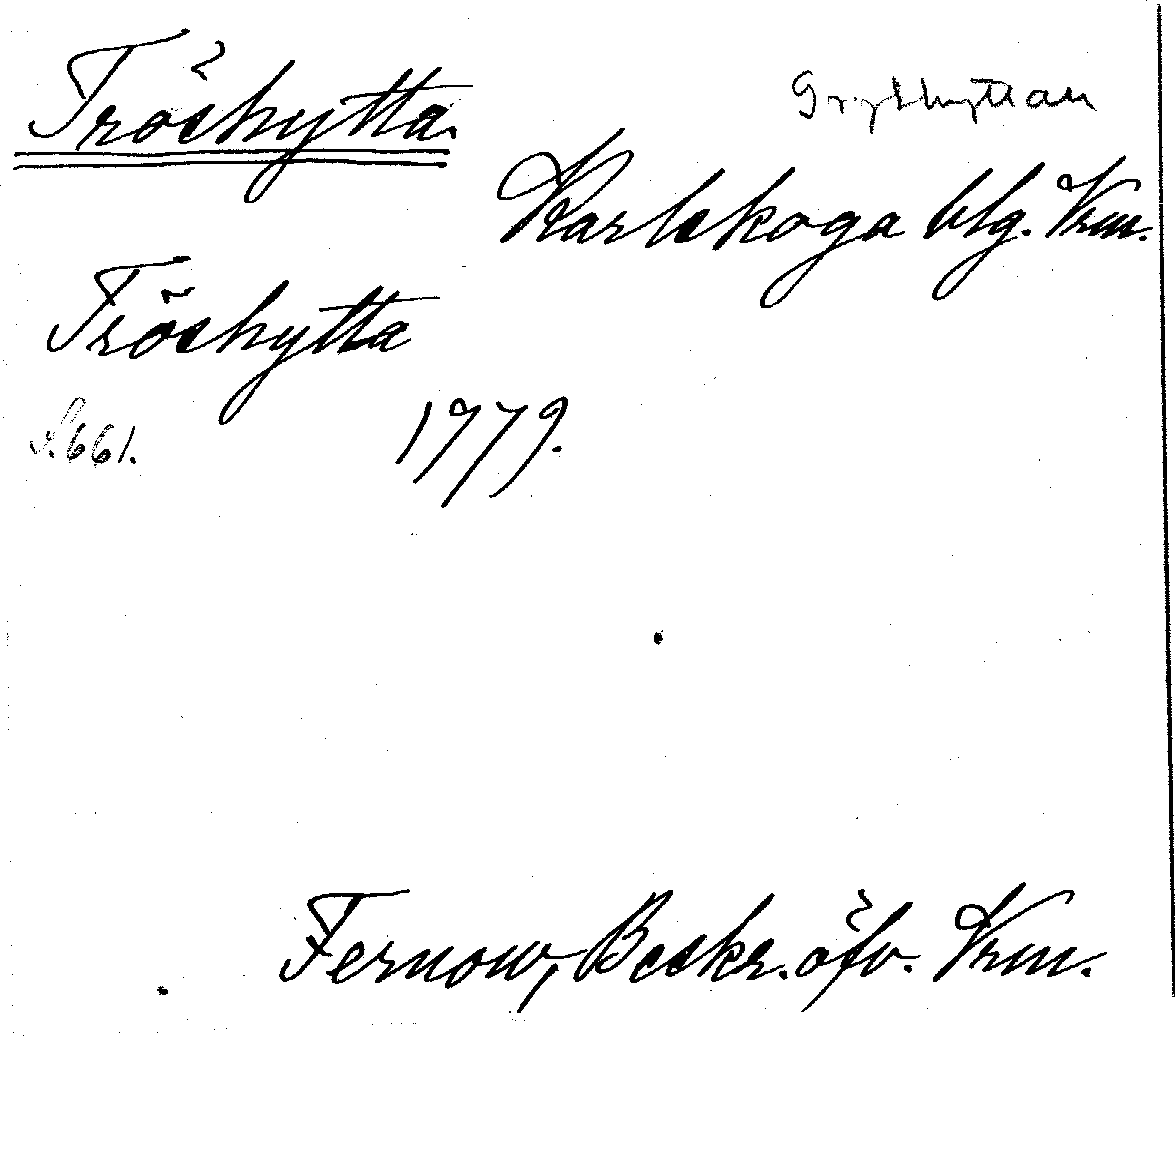 Tröshytta.
Grythyttan
Karlskoga blg. Vrm.
Tröshytta
S. 661. 1779.
Fernow, Beskr. öfv. Vrm.